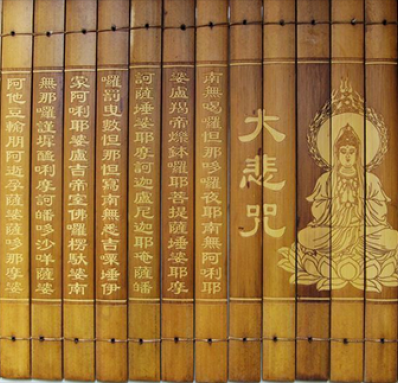 大悲咒
南無喝囉怛那哆囉夜耶南無阿唎耶
婆盧羯帝爍鉢囉耶菩提薩埵婆耶摩
訶薩埵婆耶摩訶迦盧尼迦耶唵薩皤
囉罰曳數怛那怛寫南無悉吉嘌埵伊
蒙阿唎耶婆盧吉帝室佛囉楞馱婆南
無那囉謹墀醯唎摩訶皤哆沙咩薩婆
阿他豆輸朋阿逝孕薩婆薩哆那摩婆